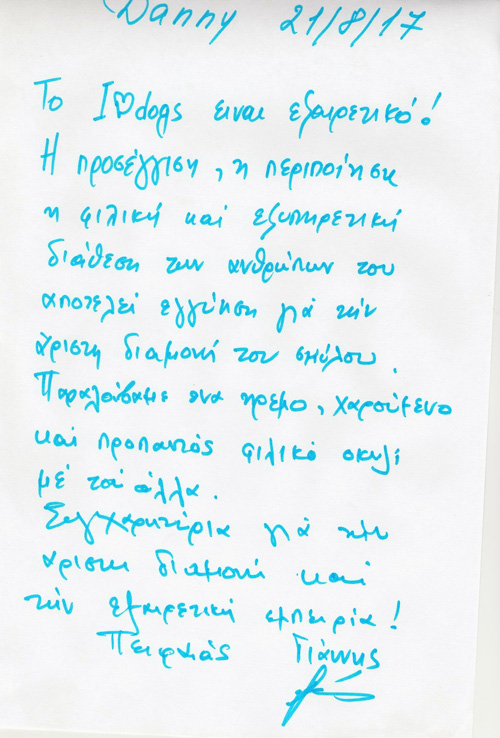 Danny 21/8/17
Το I♡dogs ειναι εξαιρετικό!
Η προσέγγιση, η περιποίηση
η φιλική και εξυπηρετική
διάθεση των ανθρώπων του
αποτελεί εγγύηση γιά την
άριστη διαμονή του σκύλου.
Παραλάβαμε ενα ηρεμο, χαρούμενο
και προπαντός φιλικό σκυλί
μέ τα άλλα.
Συγχαρητήρια γιά την
άριστη διαμονή και
την εξαιρετική εμπειρία!
Πειραιάς Γιάννης